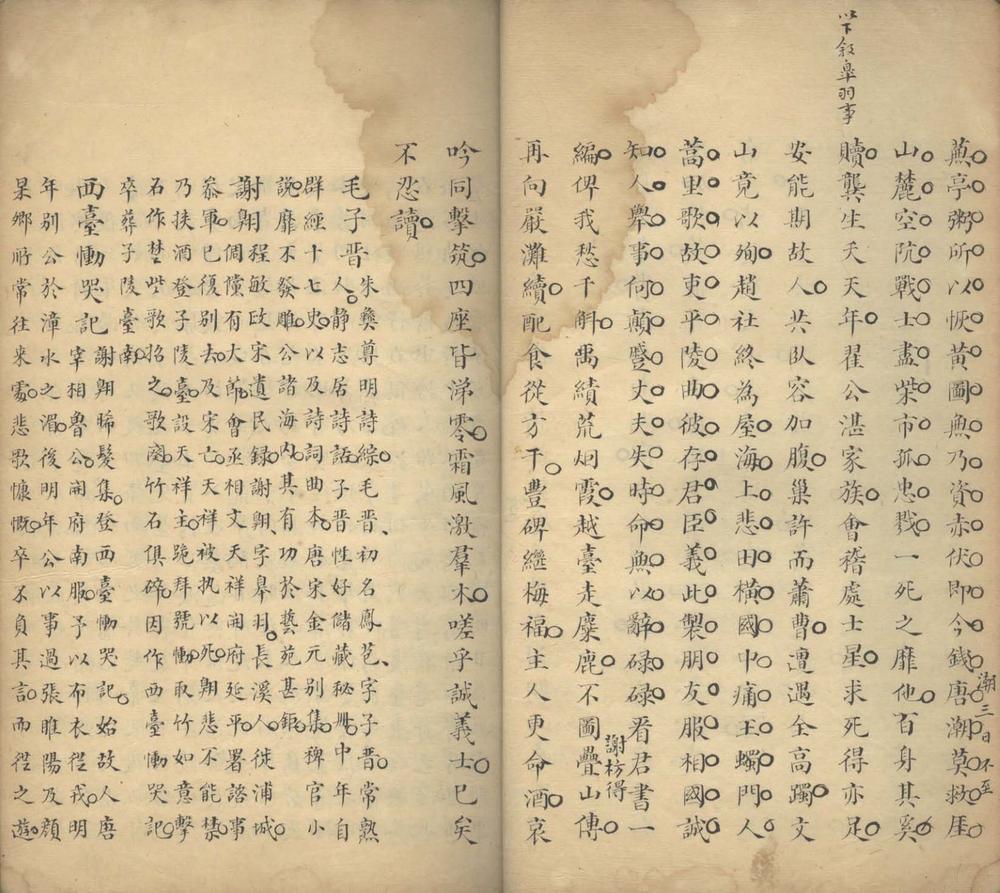 以下叙皋羽事
蕪亭粥所以恢黃圖無乃資赤伏即今錢唐潮莫救厓
潮三日不至
山麓空阬戰士盡柴市孤忠戮一死之靡他百身其奚
贖龔生夭天年翟公湛家族會稽處士星求死得亦足
安能期故人共臥容加腹巢許而蕭曹遭遇全高躅文
山竟以殉趙社終為屋海上悲田橫國中痛王蠋門人
蒿里歌故吏平陵曲彼存君臣義此製朋友服相國誠
知人舉事何顛蹙丈夫失時命無以辭碌碌看君書一
謝枋得
編俾我愁千斛禹績荒烟霞越臺走麋鹿不圖疊山傳
再向嚴灘續配食從方干豐碑繼梅福主人更命酒哀
吟同擊筑四座皆涕零霜風激羣木嗟乎誠義士已矣
不忍讀
毛子晋朱彝尊明詩綜毛晋初名鳳苞字子晋常熟
人静志居詩話子晋性好儲藏秘冊中年自
群經十七史以及詩詞曲本唐宋金元别集稗官小
說靡不發雕公諸海内其有功於藝苑甚鉅
謝翱程敏政宋遺民録謝翱字皋羽長溪人徙浦城
倜儻有大節會丞相文天祥開府延平署諮事
叅軍已復别去及宋亡天祥被执以死翱悲不能禁
乃挟酒登子陵臺設天祥主跪拜號慟取竹如意擊
石作楚些歌招之歌闋竹石俱碎因作西臺慟哭記
卒葬子陵臺南
西臺慟哭記謝翱晞髮集登西臺慟哭記始故人唐
宰相魯公開府南服予以布衣從戎明
年别公於漳水之湄後明年公以事過張睢陽及顏
杲鄉所常往来處悲歌慷慨卒不負其言而從之遊